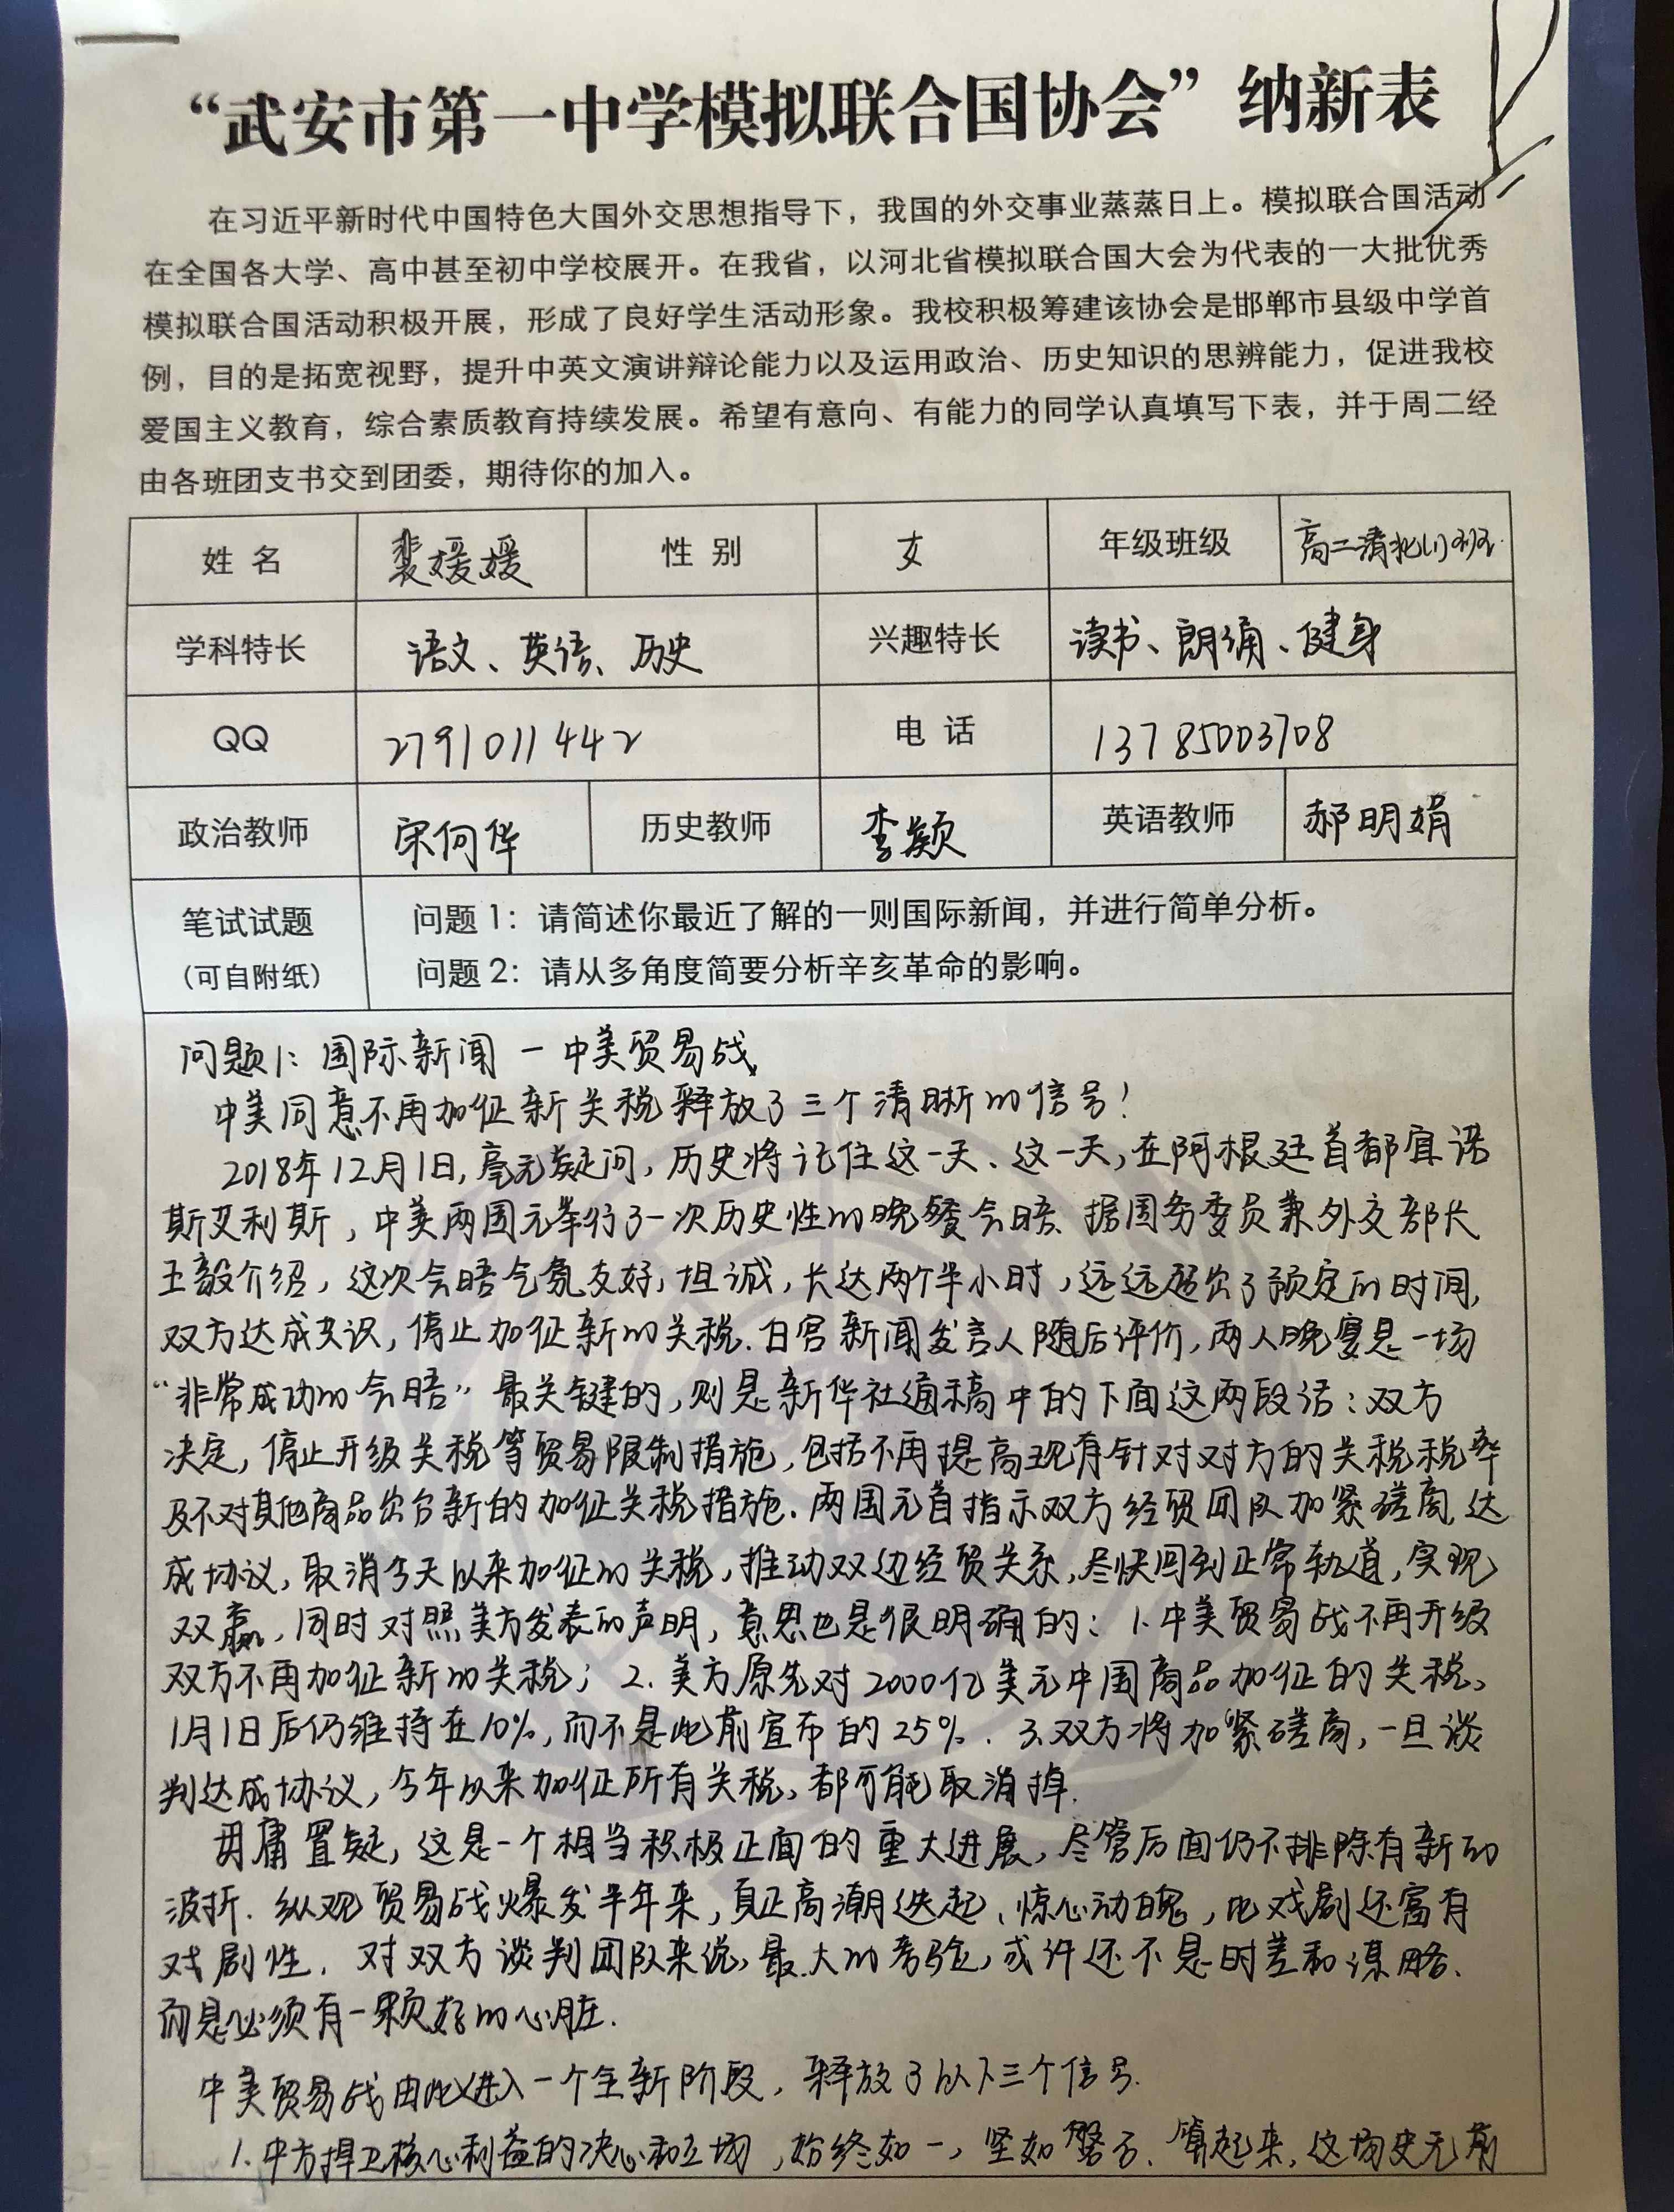 “武安市第一中学模拟联合国协会”纳新表
在习近平新时代中国特色大国外交思想指导下，我国的外交事业蒸蒸日上。模拟联合国活动
在全国各大学、高中甚至初中学校展开。在我省，以河北省模拟联合国大会为代表的一大批优秀
模拟联合国活动积极开展，形成了良好学生活动形象。我校积极筹建该协会是邯郸市县级中学首
例，目的是拓宽视野，提升中英文演讲辩论能力以及运用政治、历史知识的思辨能力，促进我校
爱国主义教育，综合素质教育持续发展。希望有意向、有能力的同学认真填写下表，并于周二经
由各班团支书交到团委，期待你的加入。
姓 名 裴媛媛 性 别 女 年级班级 高二清北(1)班
学科特长 语文、英语、历史 兴趣特长 读书、朗诵、健身
QQ 2791011442 电 话 13785003708
政治教师 宋何华 历史教师 李颖 英语教师 郝明娟
笔试试题 问题1：请简述你最近了解的一则国际新闻，并进行简单分析。
（可自附纸） 问题2：请从多角度简要分析辛亥革命的影响。
问题1：国际新闻 — 中美贸易战
中美同意不再加征新关税释放了三个清晰的信号！
2018年12月1日，毫无疑问，历史将记住这一天、这一天，在阿根廷首都宜诺
斯艾利斯，中美两国元举行了一次历史性的晚餐会晤、据国务委员兼外交部长
王毅介绍，这次会晤气氛友好，坦诚，长达两个半小时，远远超出了预定的时间，
双方达成共识，停止加征新的关税．白宫新闻发言人随后评价，两人晚宴是一场
“非常成功的会晤”最关键的，则是新华社通稿中的下面这两段话：双方
决定，停止升级关税等贸易限制措施，包括不再提高现有针对对方的关税税率
及不对其他商品出台新的加征关税措施．两国元首指示双方经贸团队加紧磋商，达
成协议，取消今天以来加征的关税，推动双边经贸关系，尽快回到正常轨道，实现
双赢，同时对照美方发表的声明，意思也是很明确的：1.中美贸易战不再升级
双方不再加征新的关税；2.美方原先对2000亿美元中国商品加征的关税、
1月1日后仍维持在10%，而不是此前宣布的25%．3.双方将加紧磋商，一旦谈
判达成协议，今年以来加征所有关税、都可能取消掉．
毋庸置疑，这是一个相当积极正面的重大进展，尽管后面仍不排除有新的
波折．纵观贸易战爆发半年来，真正高潮迭起、惊心动魄，比戏剧还富有
戏剧性．对双方谈判团队来说，最大的考验，或许还不是时差和谋略、
而是必须有一颗好的心脏．
中美贸易战由此进入一个全新阶段，释放了以下三个信号．
1.中方捍卫核心利益的决心和立场，始终如一，坚如磐石．算起来，这场史无前